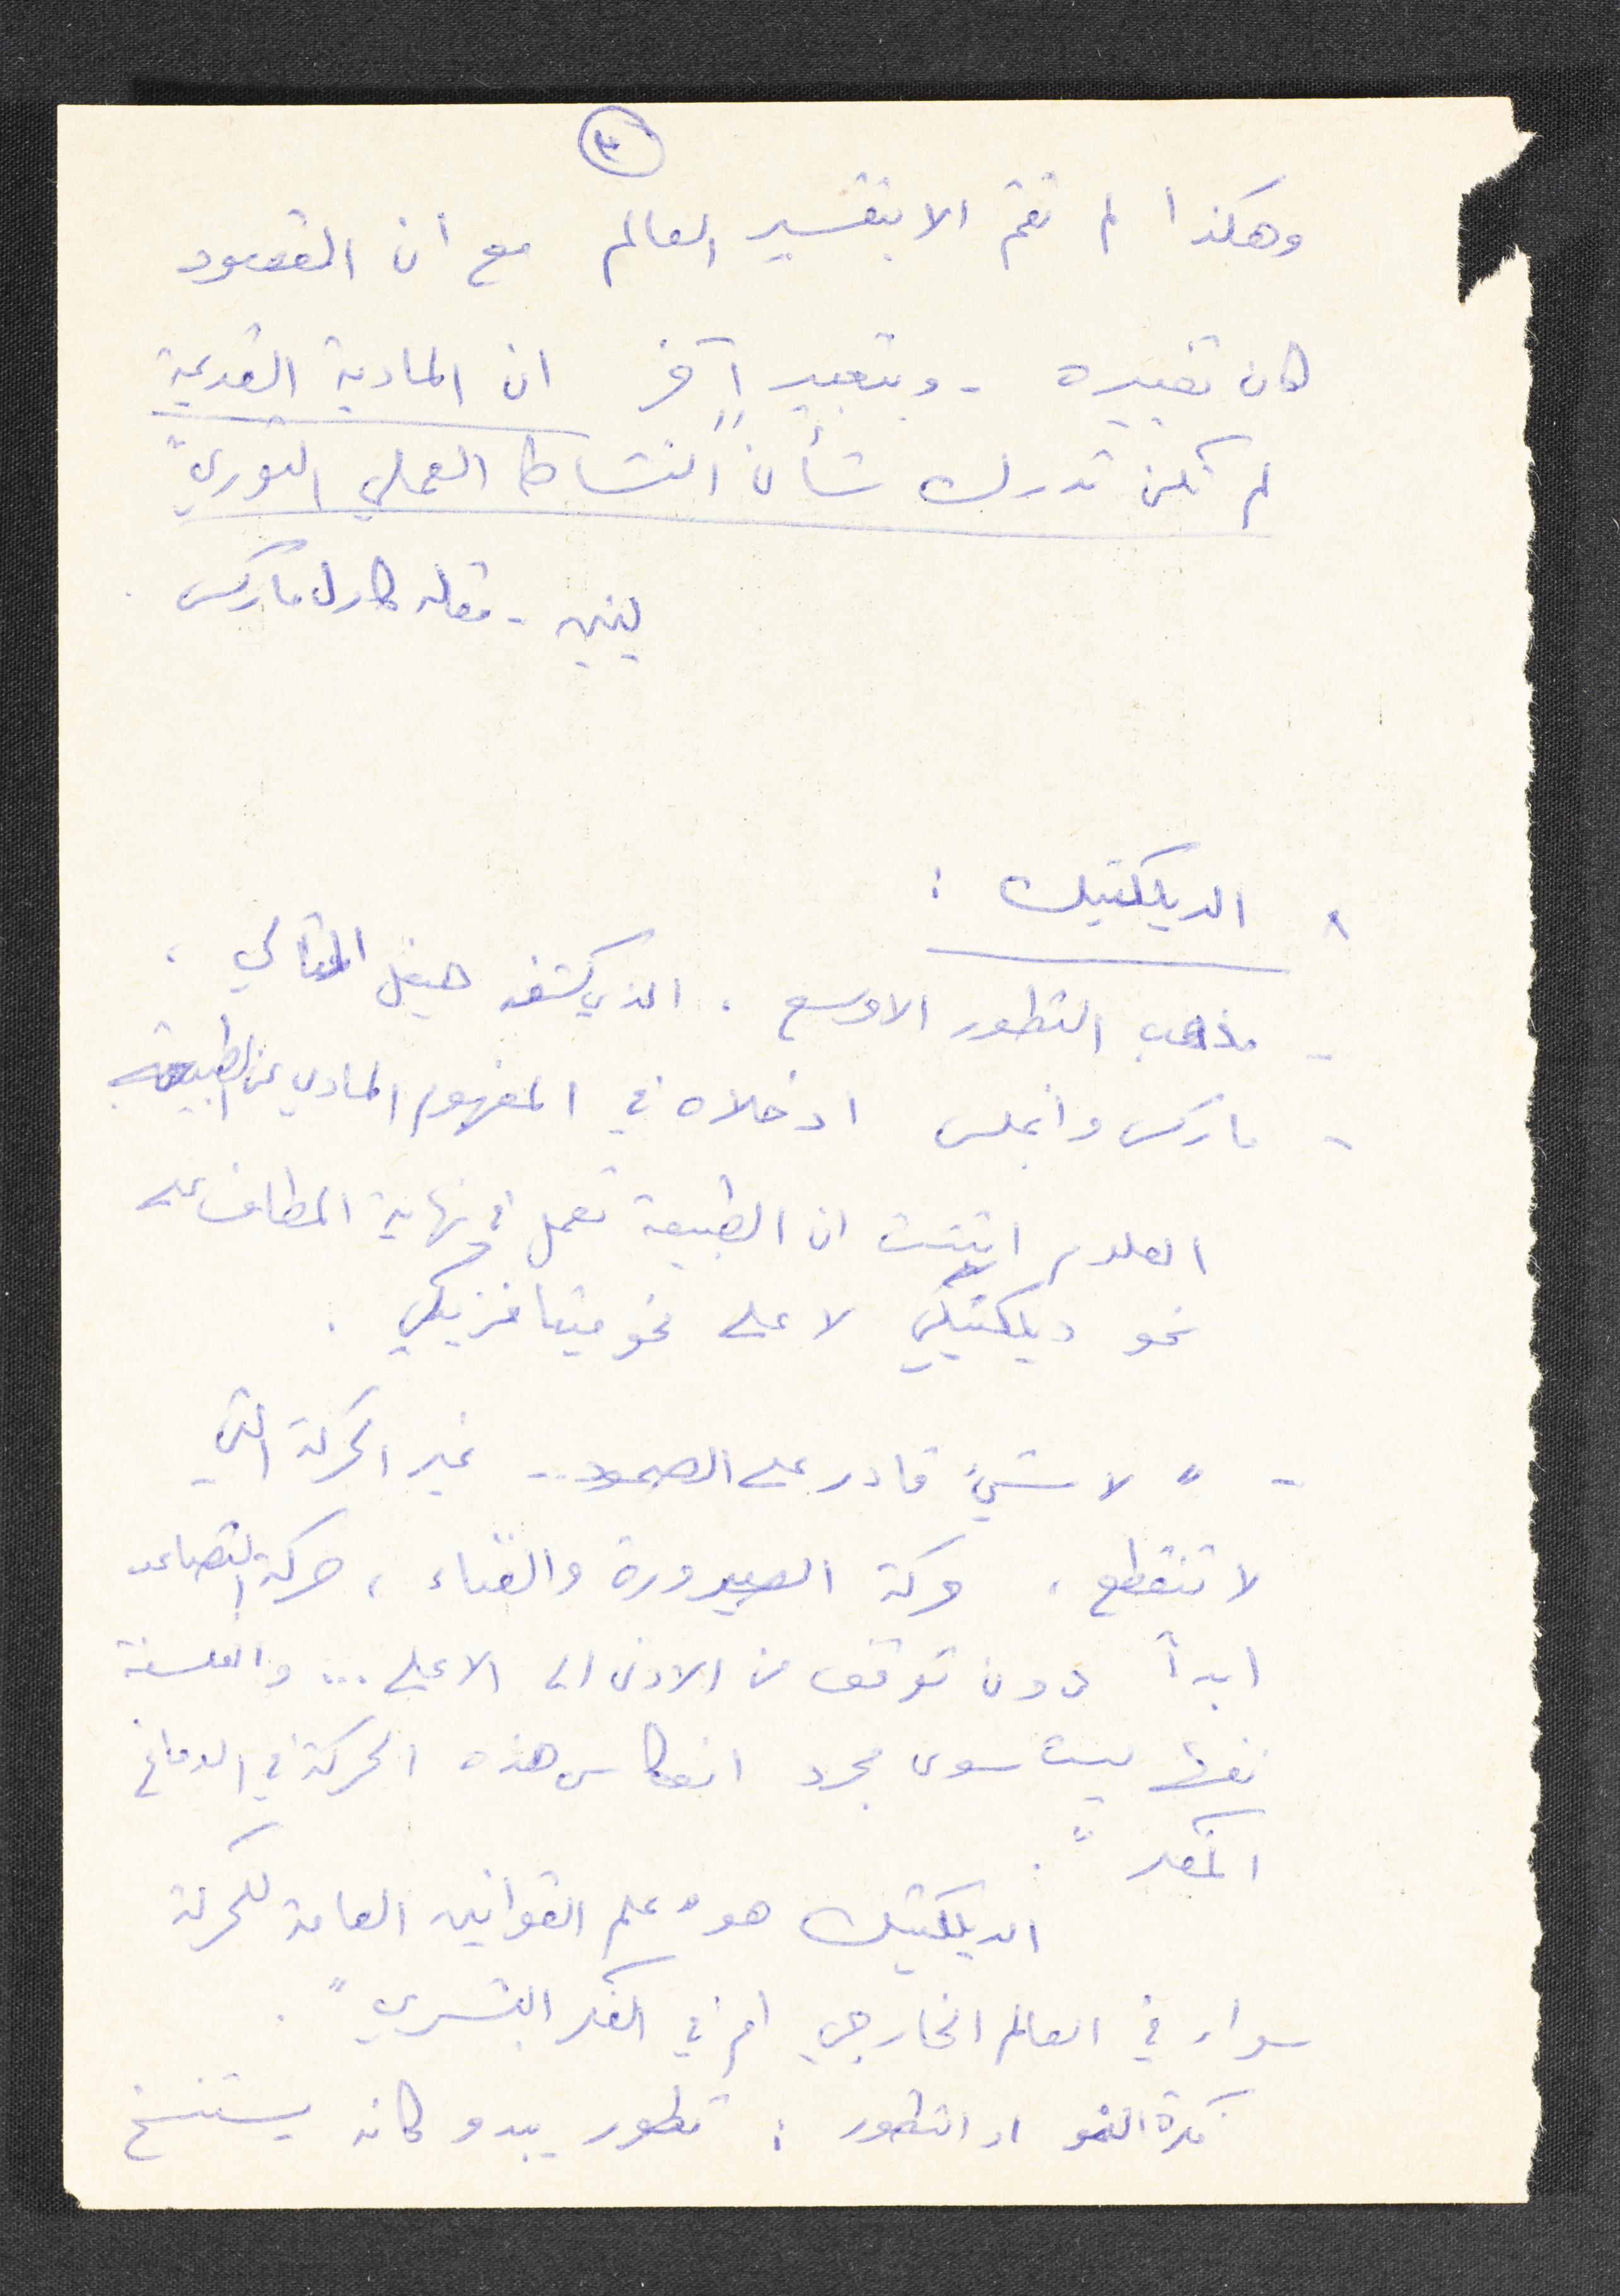 ٣
وهكذا لم تقم الا بتفسير العالم مع ان المقصود
كان تغييره - وبتعبير آخر ان المادية القديمة
لم تكن تدرك شأن "النشاط العملي الثوري"
لينين - مقاله كارل ماركس .
٨ الديلكتيك :
- مذهب التطور الاوسع . الذي كشفه هيغل المثالي ،
- ماركس وانجلس ادخلاه في المفهوم المادي عن الطبيعة
العلوم اثبتت ان الطبيعة تعمل في نهاية المطاف على
نحو ديلكتيكي لا على نحو ميتافزيكي .
- " لا شيء قادر على الصمود .. غير الحركة التي
لا تنقطع ، حركة الصيرورة والفناء ، حركة التصاعد
ابداً دون توقف من الادنى الى الاعلى ... والفلسفة
نفسها ليست سوى مجرد انعكاس هذه الحركة في الدماغ
المفكر " .
الديلكتيك هو " علم القوانين العامة للحركة
سواء في العالم الخارجي ام في الفكر البشري " .
فكرة النمو او التطور : تطور يبدو كانه يستنسخ